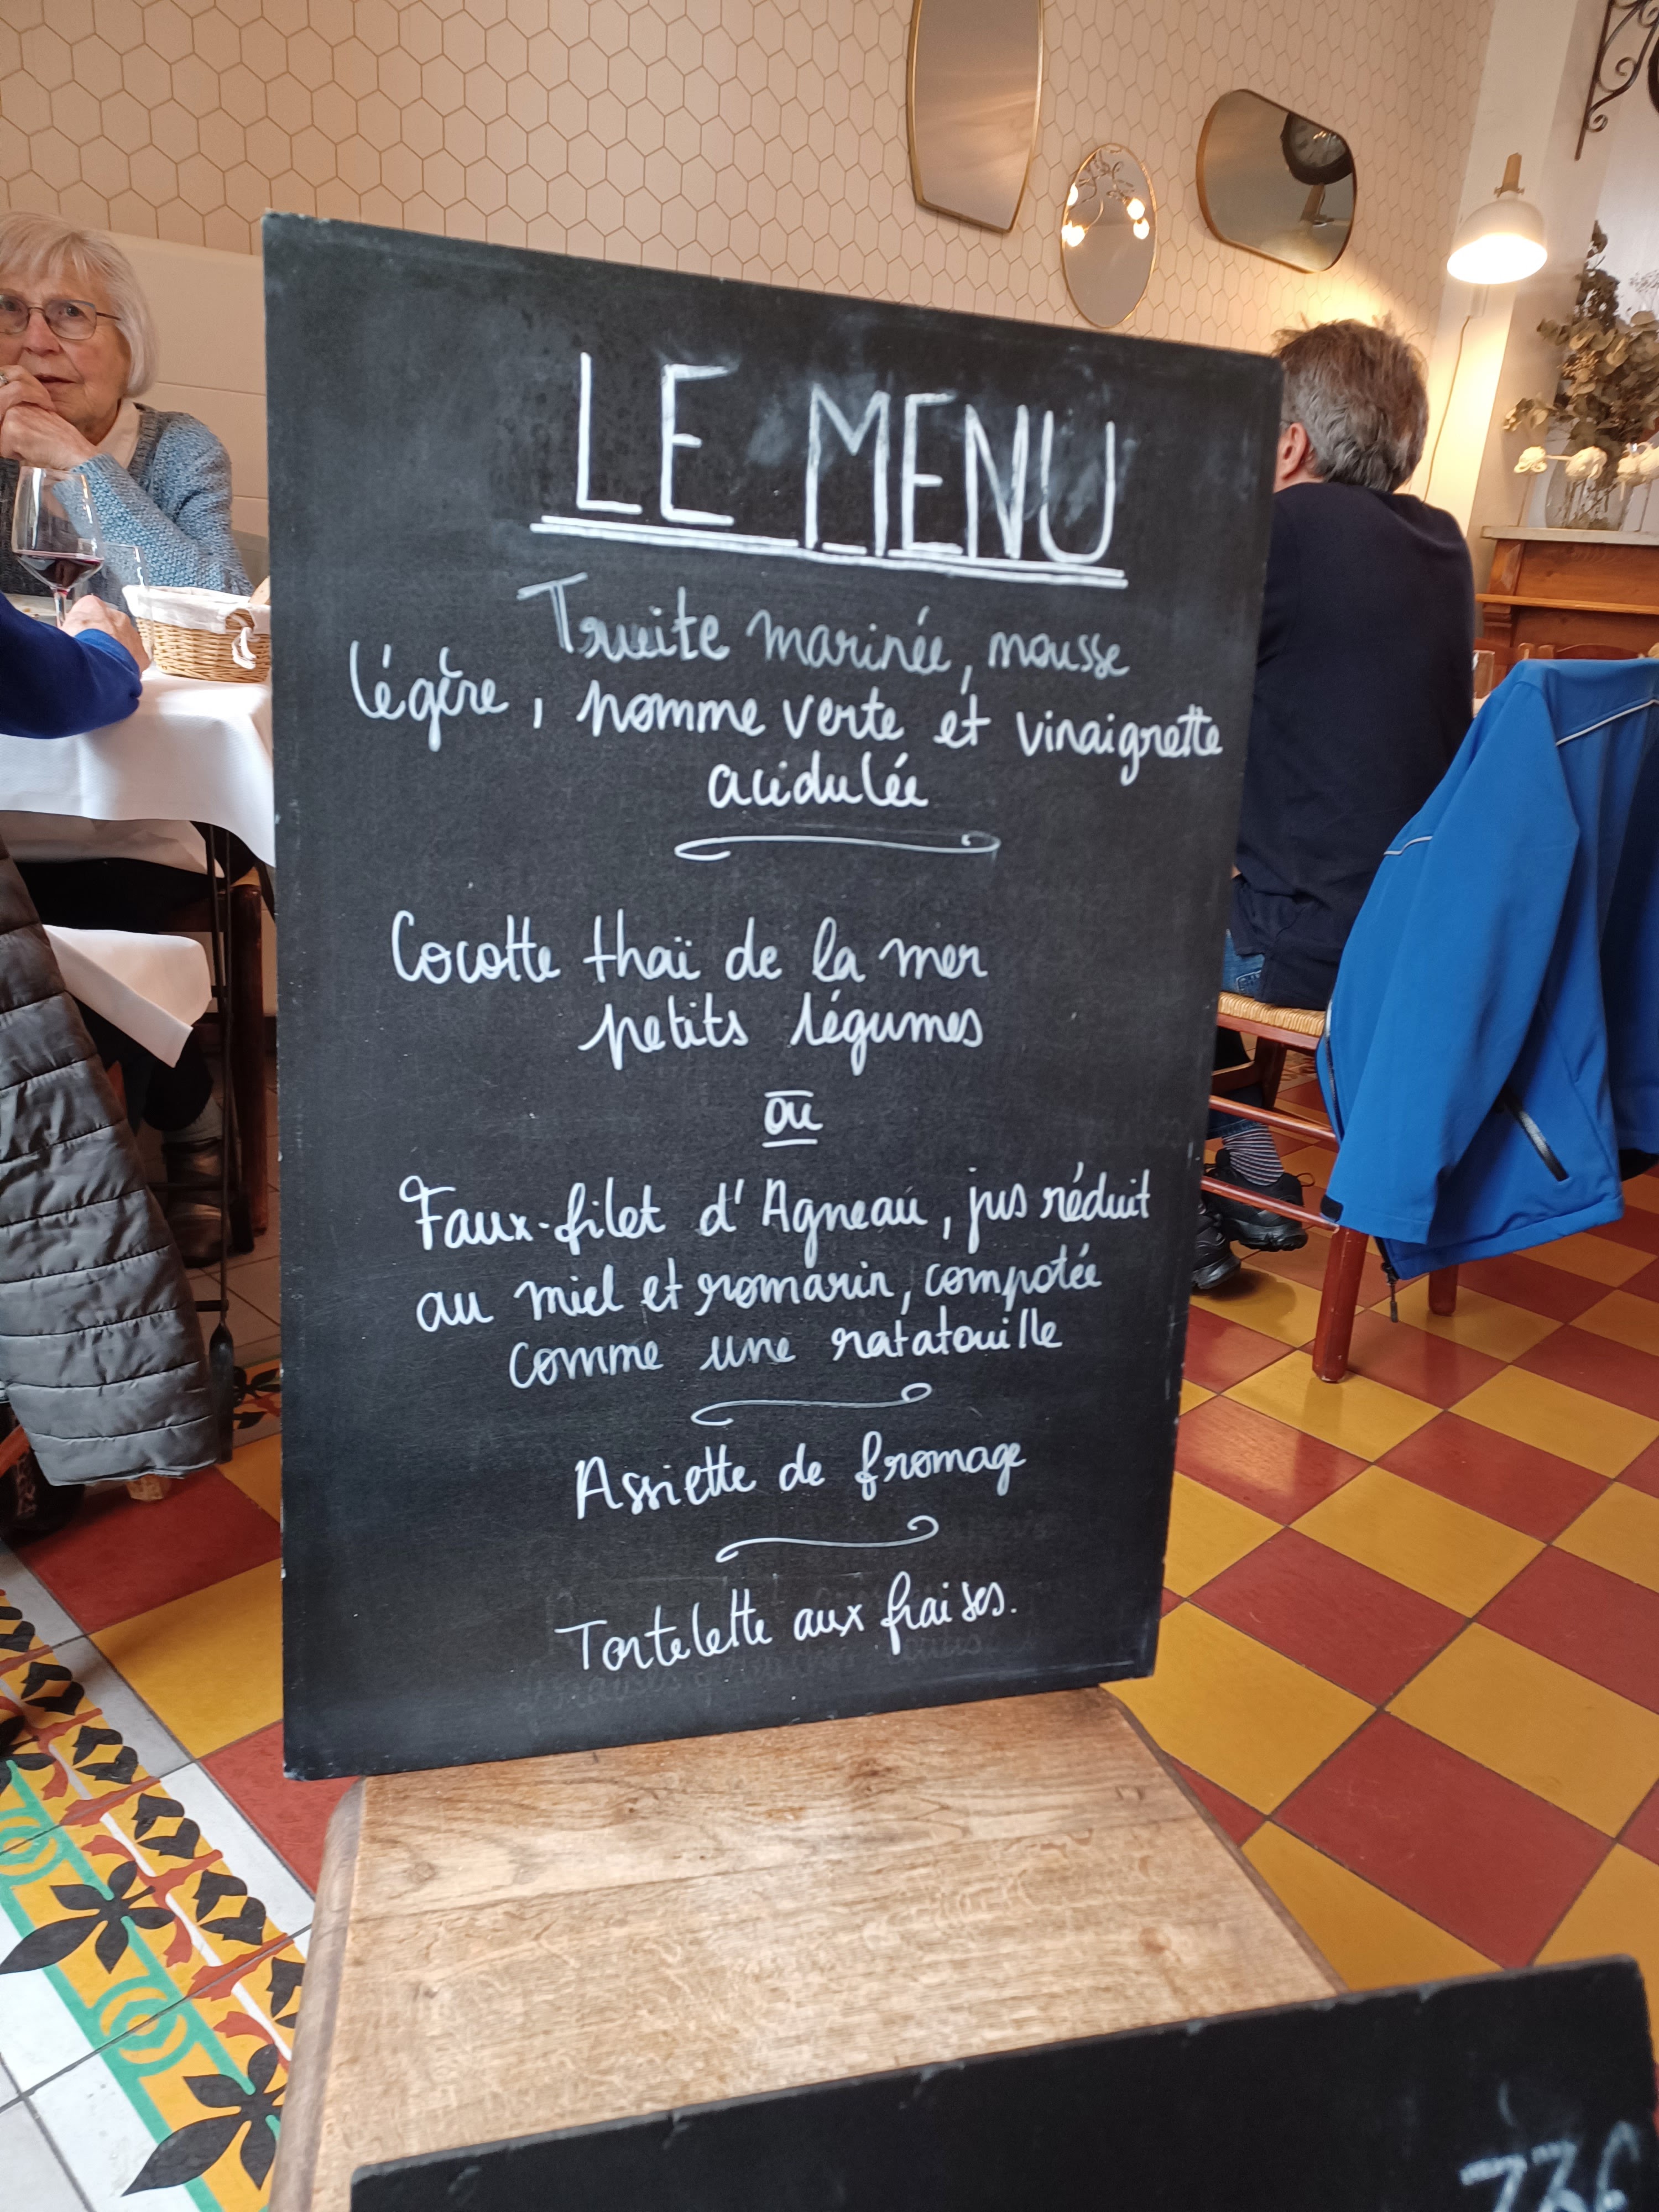 LE MENU
Truite marinée, mousse
légère, pomme verte et vinaigrette
acidulée
Cocotte thaï de la mer
petits légumes
ou
Faux-filet d'Agneau, jus réduit
au miel et romarin, compotée
comme une ratatouille
Assiette de fromage
Tartelette aux fraises.